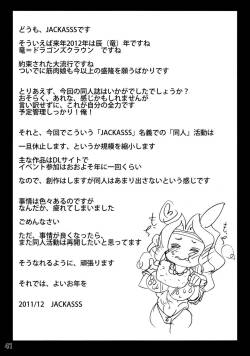 どうも、JACKASSSです
そういえば来年2012年は辰（竜）年ですね
竜＝ドラゴンズクラウン　ですね
約束された大流行ですね
ついでに筋肉娘も今以上の盛隆を願うばかりです
とりあえず、今回の同人誌はいかがでしたでしょうか？
おそらく、あれな、感じかもしれませんが
言い訳せずに、これが自分の全力です
予定管理しっかり！俺！
それと、今回でこういう「JACKASSS」名義での「同人」活動は
一旦休止します、というか規模を縮小します
主な作品はDLサイトで
イベント参加はおおよそ年に一回くらい
なので、創作はしますが同人はあまり出さないという感じです
事情は色々あるのですが
なんだか、疲れてしまいました
ごめんなさい
ただ、事情が良くなったら、
また同人活動は再開したいと思ってます
そうなれるように、頑張ります
それでは、よいお年を
2011/12　JACKASSS